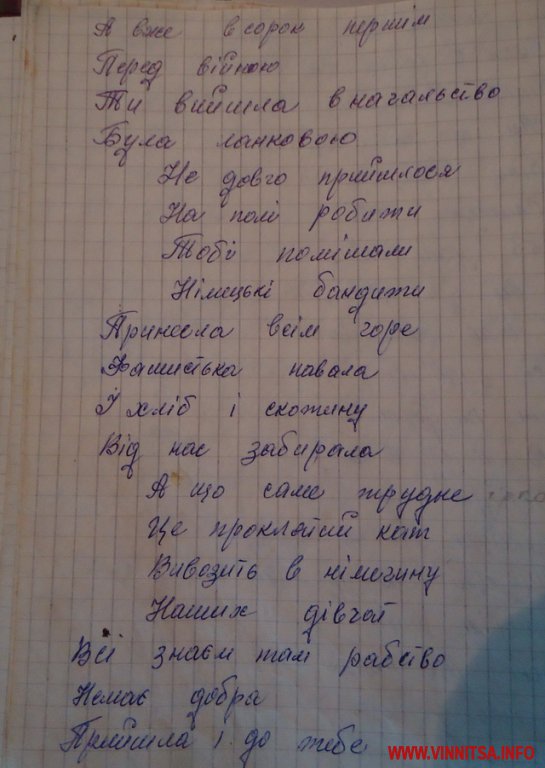 А вже в сорок першім
Перед війною
Ти вийшла в начальство
Була ланковою
Не довго прийшлося
На полі робити
Тобі помішали
Німецькі бандити
Принесла всім горе
Фашистька навала
І хліб і скотину
Від нас забирала
А що саме трудне
Це проклятий кат
Вивозить в німечину
Наших дівчат
Всі знаєм там рабство
Немає добра
Прийшла і до тебе
WWW.VINNITSA.INFO